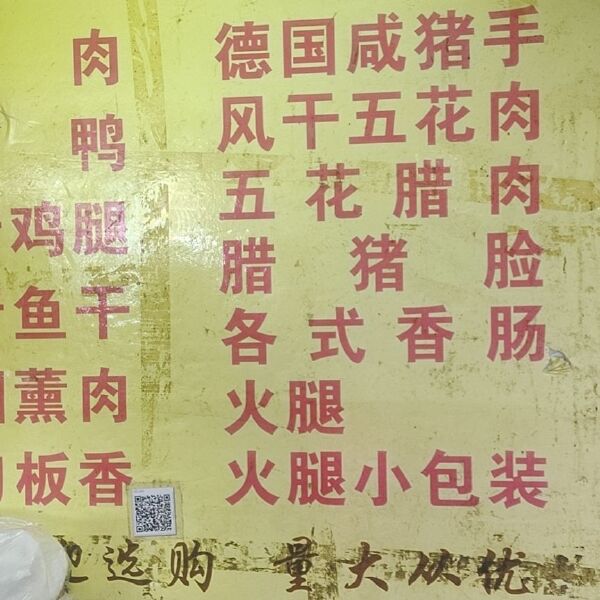 肉
鸭
鸡腿
鱼干
薰肉
板香
德国咸猪手
风干五花肉
五花腊肉
腊猪脸
各式香肠
火腿
火腿小包装
迎选购 量大从优